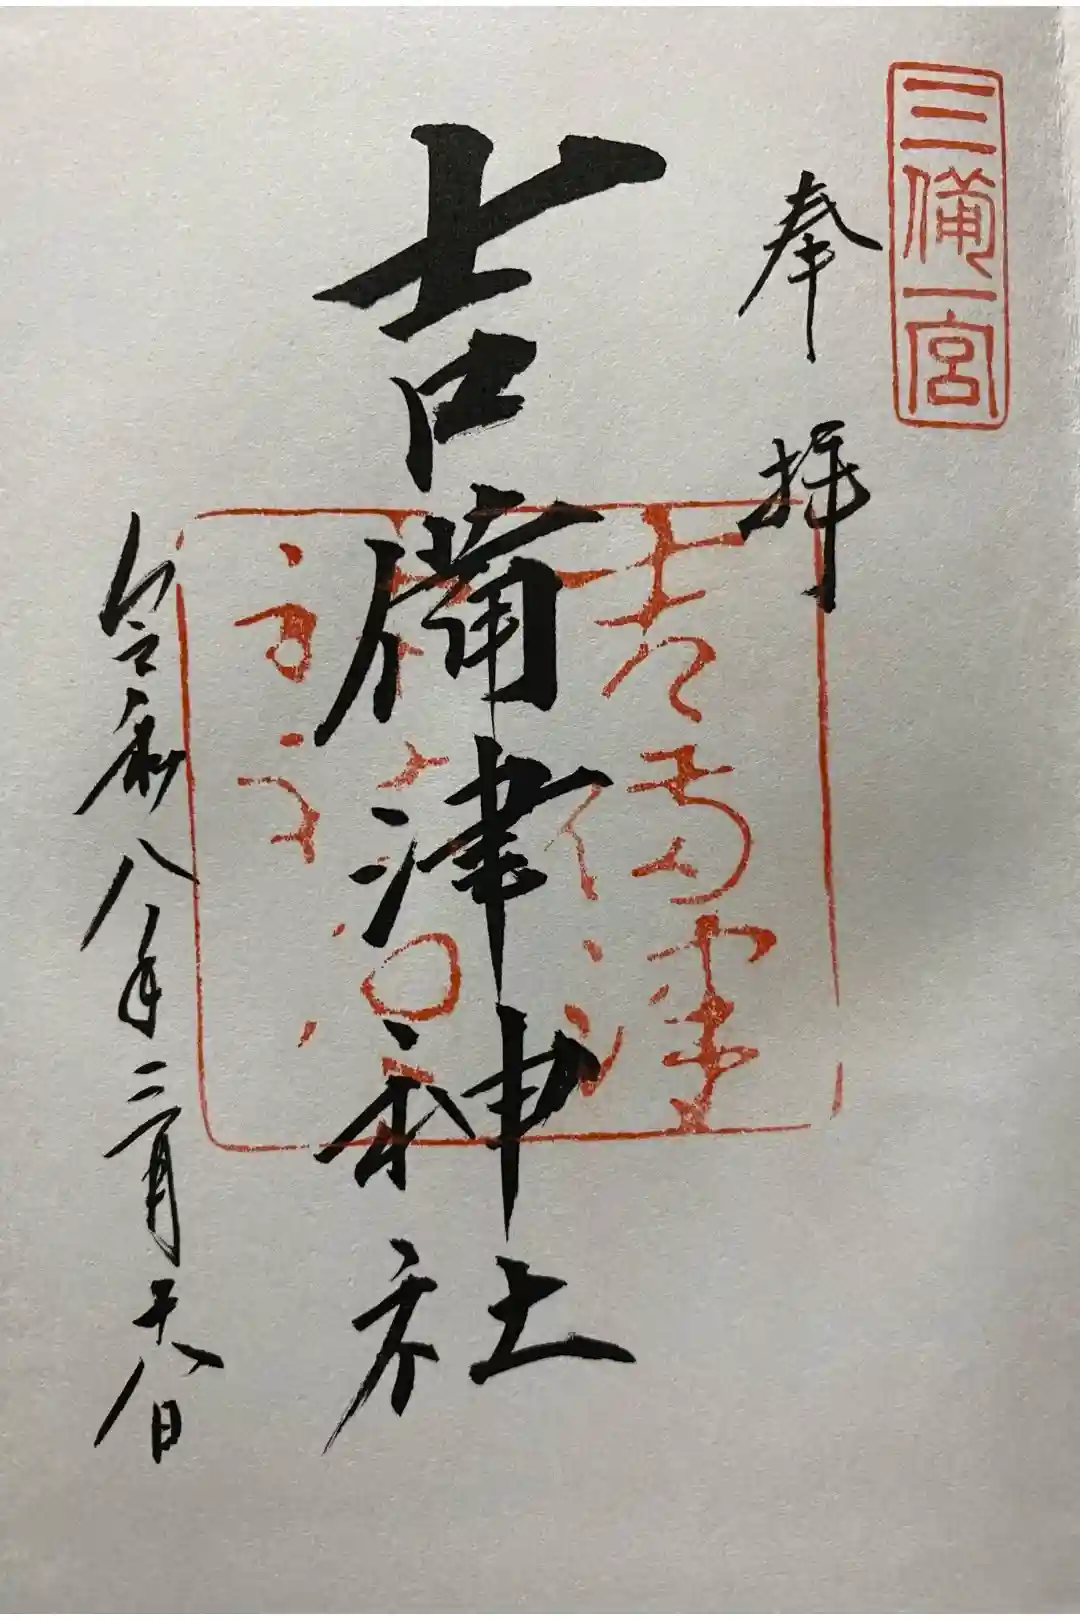 三備一宮
奉拝
吉備津神社
吉備津
令和八年三月二十八日